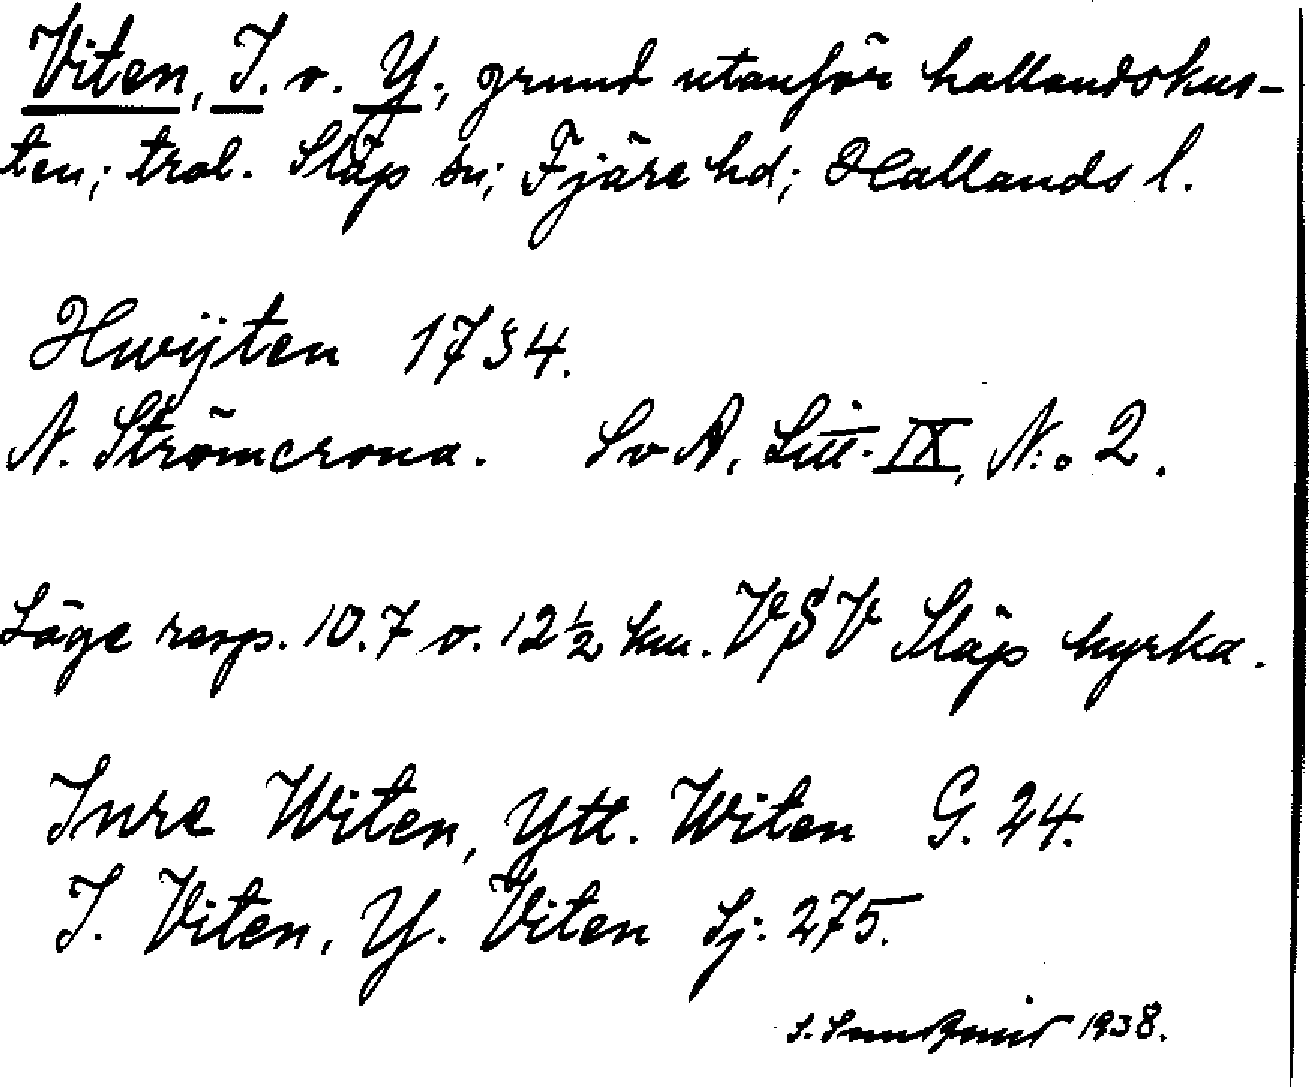 Viten, I. o. Y., grund utanför hallandskus-
ten; trol. Släp sn; Fjäre hd; Hallands l.
Hwijten 1734.
N. Strömcrona. SvA, Litt. IX, N:o 2.
Läge resp. 10.7 o. 12½ km. VSV Släp kyrka.
Inre Witen, Ytt. Witen G. 24.
I. Viten, Y. Viten Sj: 275.
1938.